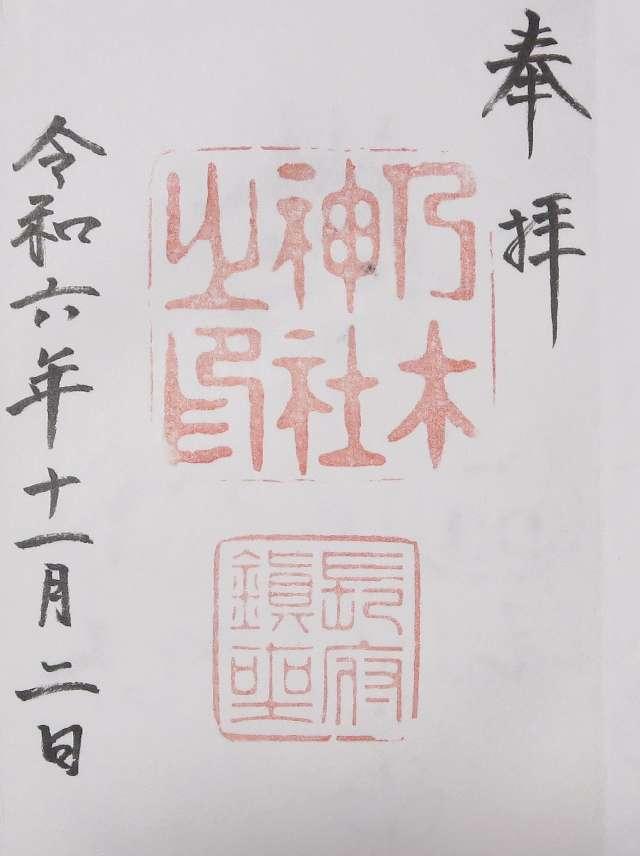 奉拝
乃木
神社
之印
長府
鎮座
令和六年十一月二日